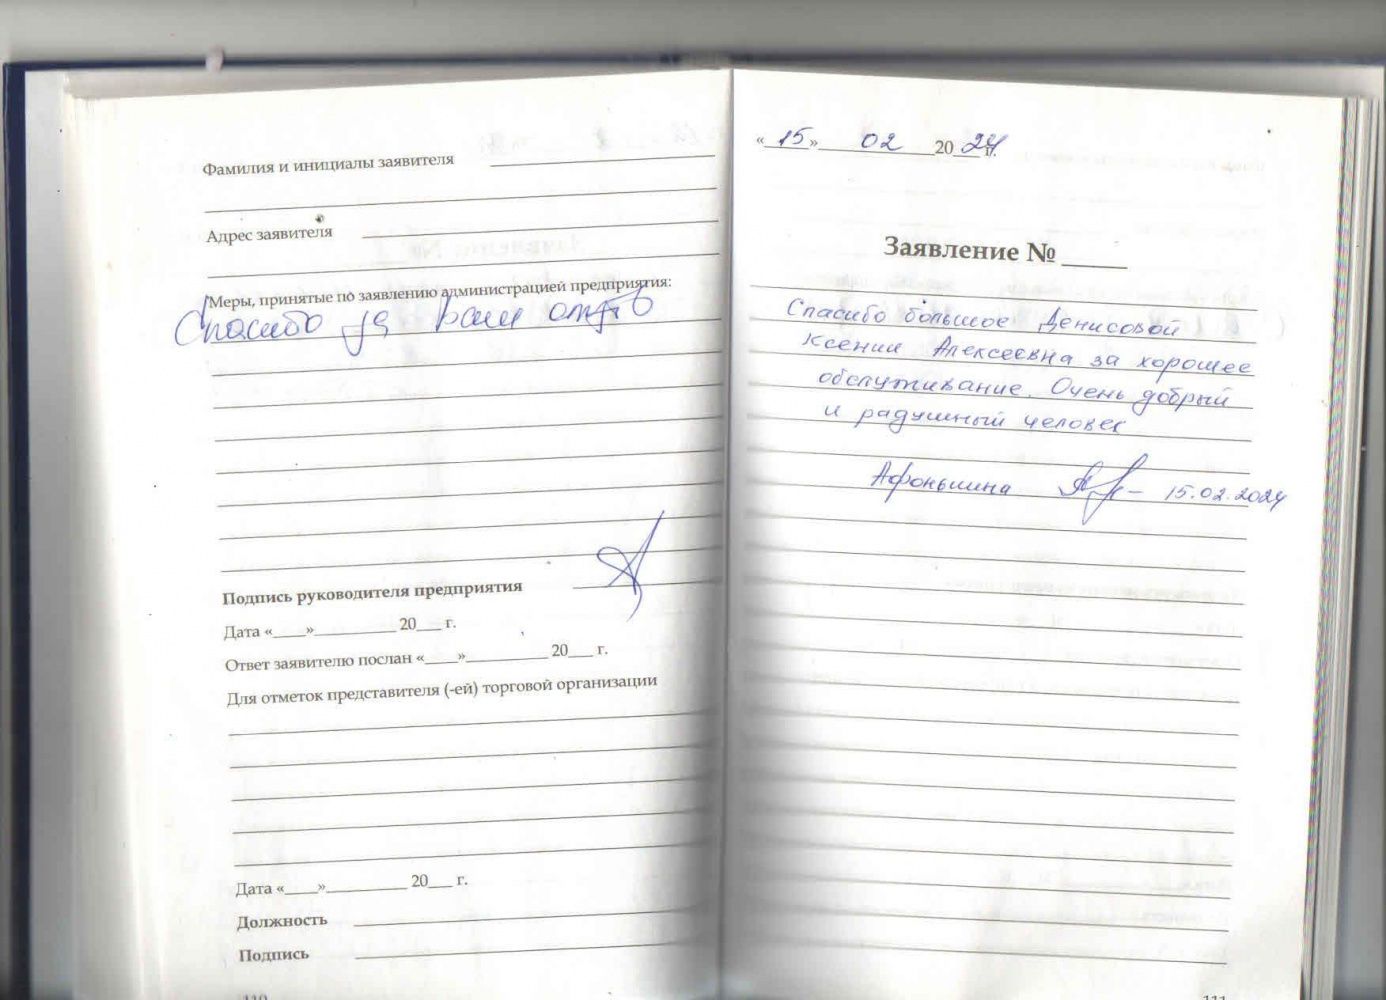 Фамилия и инициалы заявителя
Адрес заявителя
Меры, принятые по заявлению администрацией предприятия:
Спасибо за ваш отзыв
Подпись руководителя предприятия
Дата «____»__________ 20___ г.
Ответ заявителю послан «____»__________ 20___ г.
Для отметок представителя (-ей) торговой организации
Дата «____»__________ 20___ г.
Должность
Подпись
110
«15» 02 2024 г.
Заявление № _____
Спасибо большое Денисовой
Ксении Алексеевна за хорошее
обслуживание. Очень добрый
и радушный человек
Афонькина 15.02.2024
111